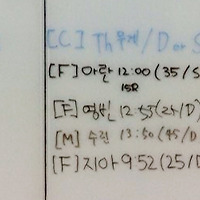 [C] Th무게/D or S
[F] 아란 12:00 (35/S
15R
[F] 영빈 12:55 (25/D)
[M] 수진 13:50 (45/D
[F] 지아 9:52 (25/D